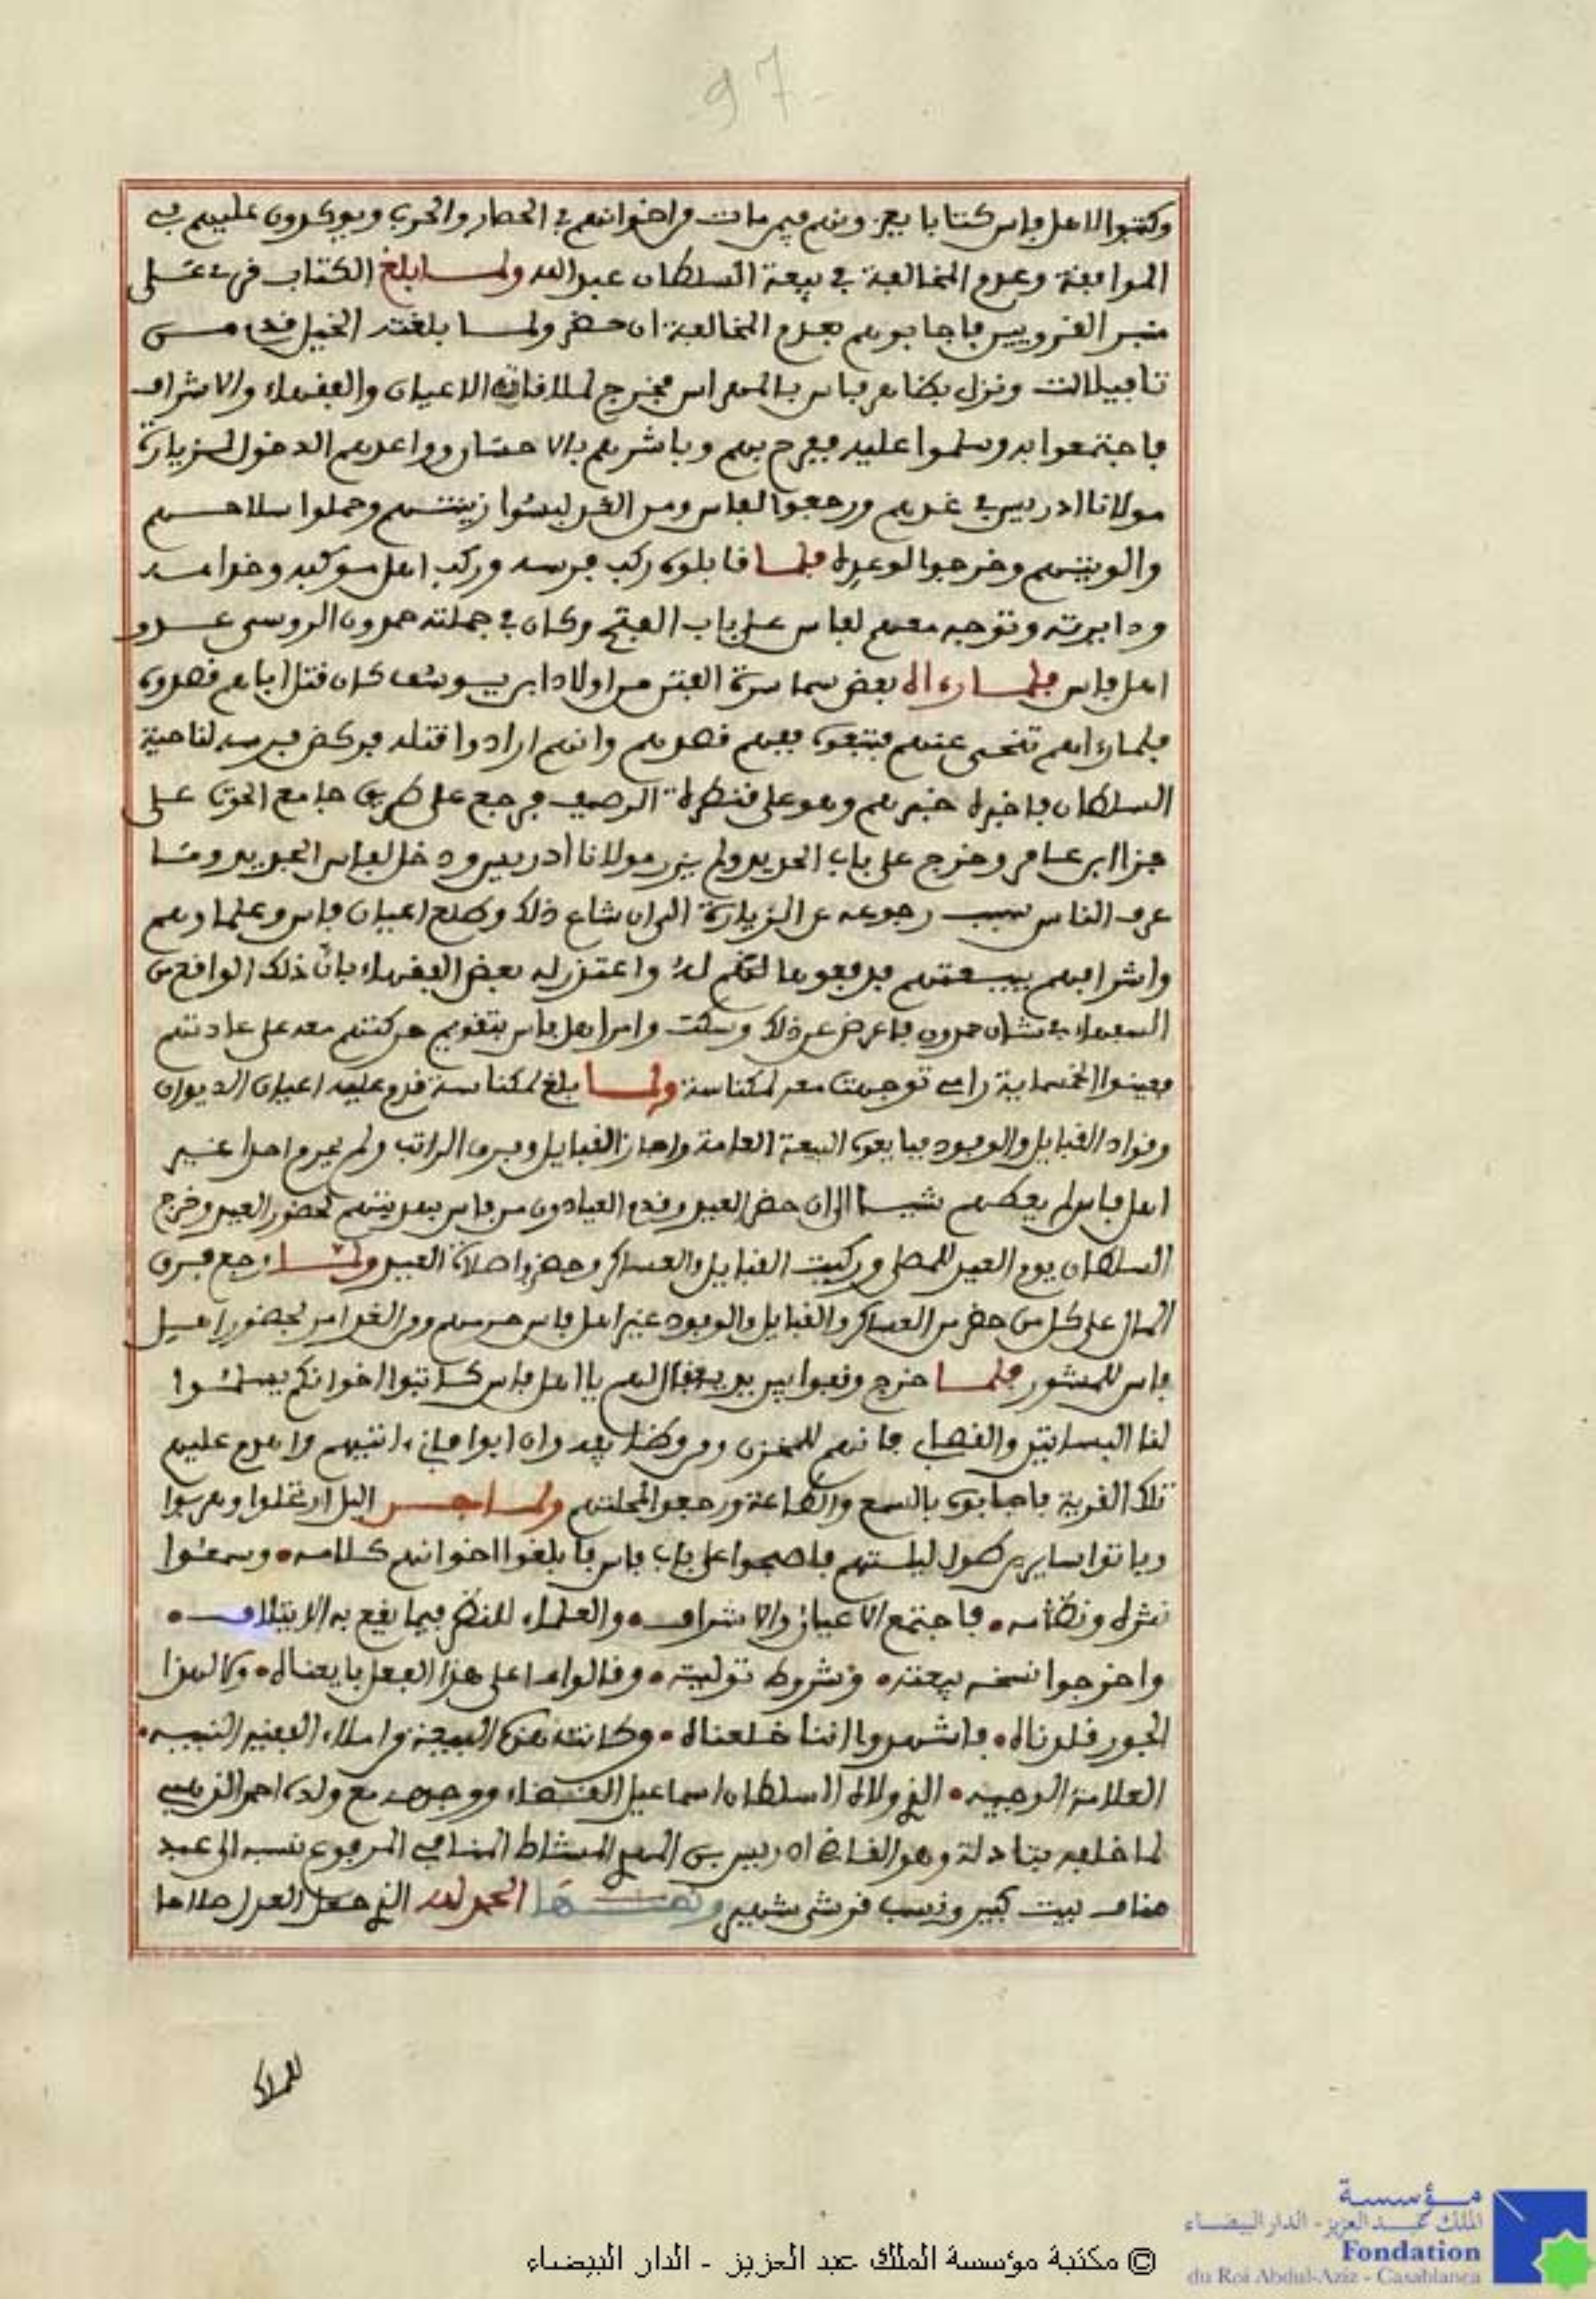 97
وكتبوا لاهل فاس كتابا يعزونهم فيمن مات من اخوانهم في الحصار والحرب ويوكدون عليهم في
الموافقة وعدم المخالفة في بيعة السلطان عبد الله ولما بلغ الكتاب قرئ على
منبر القرويين فاجابوهم بعدم المخالفة ان حضر ولما بلغته الخيل قدم من
تافيلالت ونزل بظاهر فاس بالمهراس فخرج لملاقاته الاعيان والفقهاء والاشراف
فاجتمعوا به وسلموا عليه ففرح بهم وباشرهم بالاحسان وواعدهم الدخول لزيارة
مولانا ادريس في غدهم ورجعوا لفاس ومن الغد لبسوا زينتهم وحملوا سلاحهم
والويتهم وخرجوا لوعده فلما قابلوه ركب فرسه وركب اهل موكبه وخدامه
ودايرته وتوجه معهم لفاس على باب الفتح وكان في جملته حمدون الروسي عدو
اهل فاس فلما رءاه بعض سماسرة الفتن من اولاد ابن يوسف كان قتل اباهم قصدوه
فلما رءاهم تنحى عنهم فتبعوه ففهم قصدهم وانهم ارادوا قتله فركض فرسه لناحية
السلطان فاخبره خبرهم وهو على قنطرة الرصيف فرجع على طريق جامع الحوت على
جزا ابن عامر وخرج على باب الحديد ولم يزر مولانا ادريس ودخل لفاس الجديد وما
عرف الناس سبب رجوعه عن الزيارة الى ان شاع ذلك وطلع اعيان فاس وعلماوهم
واشرافهم ببيعتهم فدفعوها له واعتذر له بعض الفقهاء بان ذلك الواقع من
السفهاء في شان حمدون فاعرض عن ذلك وسكت وامر اهل فاس بتقويم حركتهم معه على عادتهم
فعينوا الخمسماية رامي توجهت معه لمكناسة ولما بلغ لمكناسة قدم عليه اعيان الديوان
وقواد القبايل والوفود فبايعوه البيعة العامة واجاز القبايل وفرق الراتب ولم يحرم احدا غير
اهل فاس لم يعطهم شيئا الى ان حضر العيد وقدم العيادون من فاس بهديتهم لحضور العيد وخرج
السلطان يوم العيد للمصلى وركبت القبايل والعساكر وحضروا صلاة العيد ولما رجع فرق
المال على كل من حضر من العساكر والقبايل والوفود غير اهل فاس حرمهم ومن الغد امر بحضور اهل
فاس للمشور فلما خرج وقفوا بين يديه فقال لهم يا اهل فاس كاتبوا اخوانكم يسلموا
لنا البساتين والقصاب فانهم للمخزن ومن وظايفه وان ابوا فاني ءاتيهم واهدم عليهم
تلك القرية فاجابوه بالسمع والطاعة ورجعوا لمحلتهم ولما جن اليل ارتحلوا وهربوا
وباتوا سايرين طول ليلتهم فاصبحوا على باب فاس فابلغوا اخوانهم كلامه • وسمعوا
نثره ونظامه • فاجتمع الاعيان والاشراف • والعلماء للنظر فيما يقع به الايتلاف •
واخرجوا نسخة بيعته • وشروط توليته • وقالوا ما على هذا الفعل بايعناه • وما لهذا
الجور قلدناه • فاشهدوا اننا خلعناه • وكانت هذه البيعة من املاء الفقيه النبيه •
العلامة الوجيه • الذي ولاه السلطان اسماعيل القضاء ووجهه مع ولده احمد الذهبي
لما خلفه بتادلة وهو القاضي ادريس بن المهدي المشاط المنافي المرفوع نسبه الى عبد
مناف بيت كبير ونسب قرشي شهير ونصها الحمد لله الذي جعل العدل صلاحا
للملك
© مكتبة مؤسسة الملك عبد العزيز - الدار البيضاء
مؤسسة
الملك عبد العزيز - الدار البيضاء
Fondation
du Roi Abdul-Aziz - Casablanca